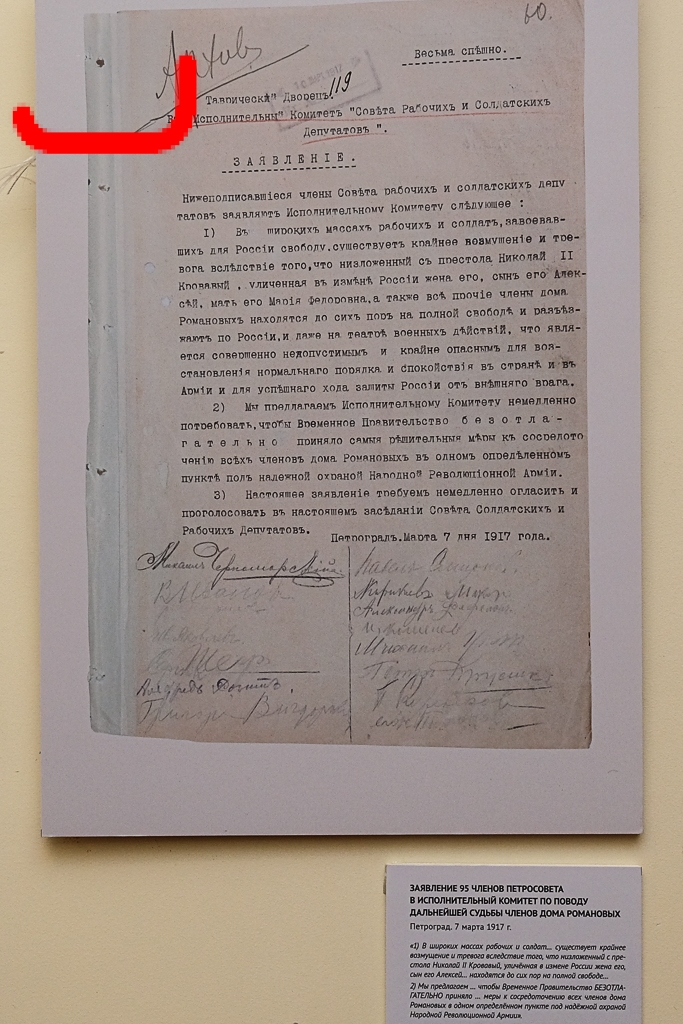 60.
Весьма спѣшно.
Таврическiй Дворецъ. 119
Исполнительный Комитетъ "Совѣта Рабочихъ и Солдатскихъ
Депутатовъ ".
ЗАЯВЛЕНIЕ.
Нижеподписавшiеся члены Совѣта рабочихъ и солдатскихъ депу
татовъ заявляютъ Исполнительному Комитету слѣдующее :
I) Въ широкихъ массахъ рабочихъ и солдатъ,завоевав-
шихъ для Россiи свободу,существуетъ крайнее возмущенiе и тре-
вога вслѣдствiе того,что низложенный съ престола Николай II
Кровавый , уличенная въ измѣнѣ Россiи жена его, сынъ его Алек-
сѣй, мать его Марiя Федоровна,а также всѣ прочiе члены дома
Романовыхъ находятся до сихъ поръ на полной свободѣ и разъѣз-
жаютъ по Россiи,и даже на театрѣ военныхъ дѣйствiй, что явля-
ется совершенно недопустимымъ и крайне опаснымъ для воз-
становленiя нормальнаго порядка и спокойствiя въ странѣ и въ
Армiи и для успѣшнаго хода защиты Россiи отъ внѣшняго врага.
2) Мы предлагаемъ Исполнительному Комитету немедленно
потребовать,чтобы Временное Правительство б е з о т л а -
г а т е л ь н о приняло самыя рѣшительныя мѣры къ сосредото
ченiю всѣхъ членовъ дома Романовыхъ въ одномъ опредѣленномъ
пунктѣ подъ надежной охраной Народной Революцiонной Армiи.
3) Настоящее заявленiе требуемъ немедленно огласить и
проголосовать въ настоящемъ засѣданiи Совѣта Солдатскихъ и
Рабочихъ Депутатовъ.
Петроградъ.Марта 7 дня 1917 года.
Михаилъ
Григорiй
ЗАЯВЛЕНИЕ 95 ЧЛЕНОВ ПЕТРОСОВЕТА
В ИСПОЛНИТЕЛЬНЫЙ КОМИТЕТ ПО ПОВОДУ
ДАЛЬНЕЙШЕЙ СУДЬБЫ ЧЛЕНОВ ДОМА РОМАНОВЫХ
Петроград. 7 марта 1917 г.
«1) В широких массах рабочих и солдат... существует крайнее
возмущение и тревога вследствие того, что низложенный с пре-
стола Николай II Кровавый, уличённая в измене России жена его,
сын его Алексей... находятся до сих пор на полной свободе...
2) Мы предлагаем ... чтобы Временное Правительство БЕЗОТЛА-
ГАТЕЛЬНО приняло ... меры к сосредоточению всех членов дома
Романовых в одном определённом пункте под надёжной охраной
Народной Революционной Армии».